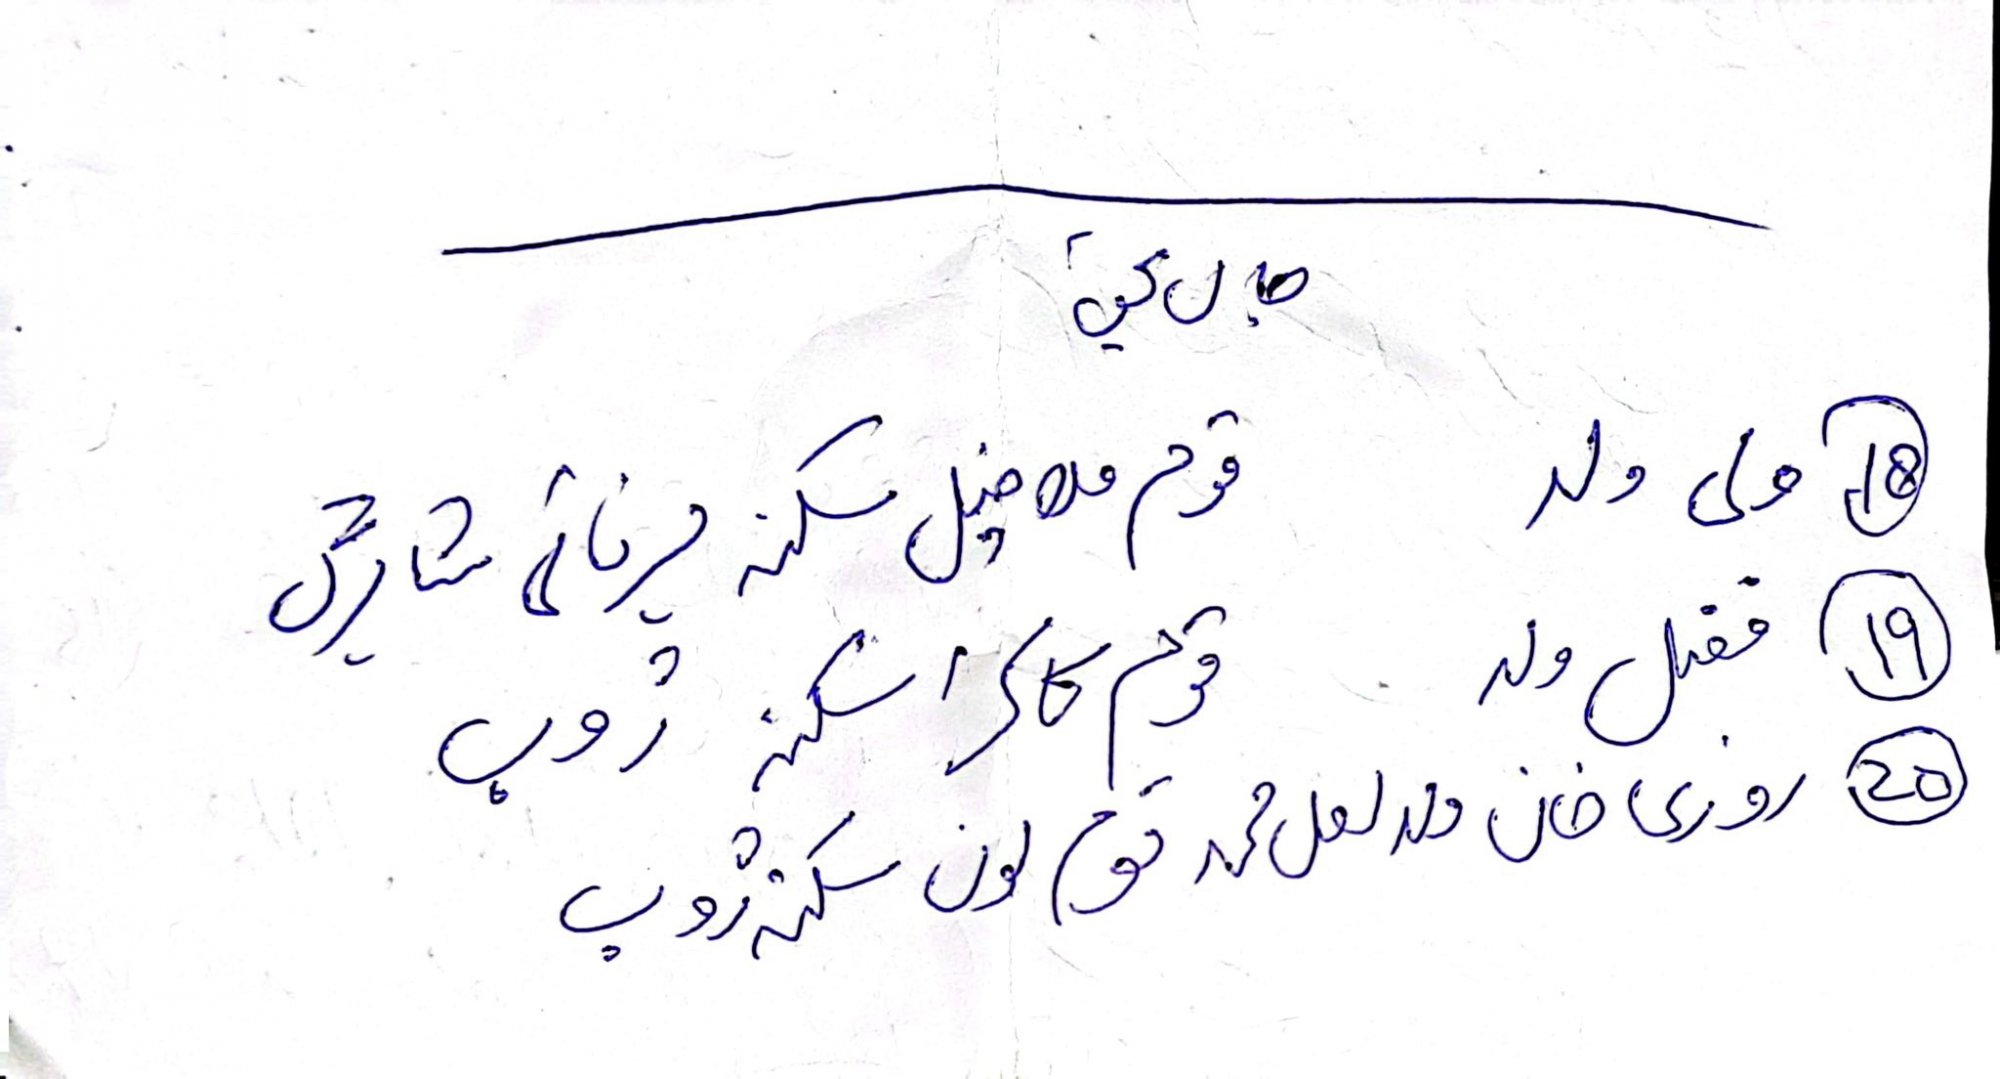 18 ولی ولد قوم ملاخیل سکنہ شاہرگ
19 فضل ولد قوم کاکڑ سکنہ ژوب
20 روزی خان ولد لعل محمد قوم لون سکنہ ژوب